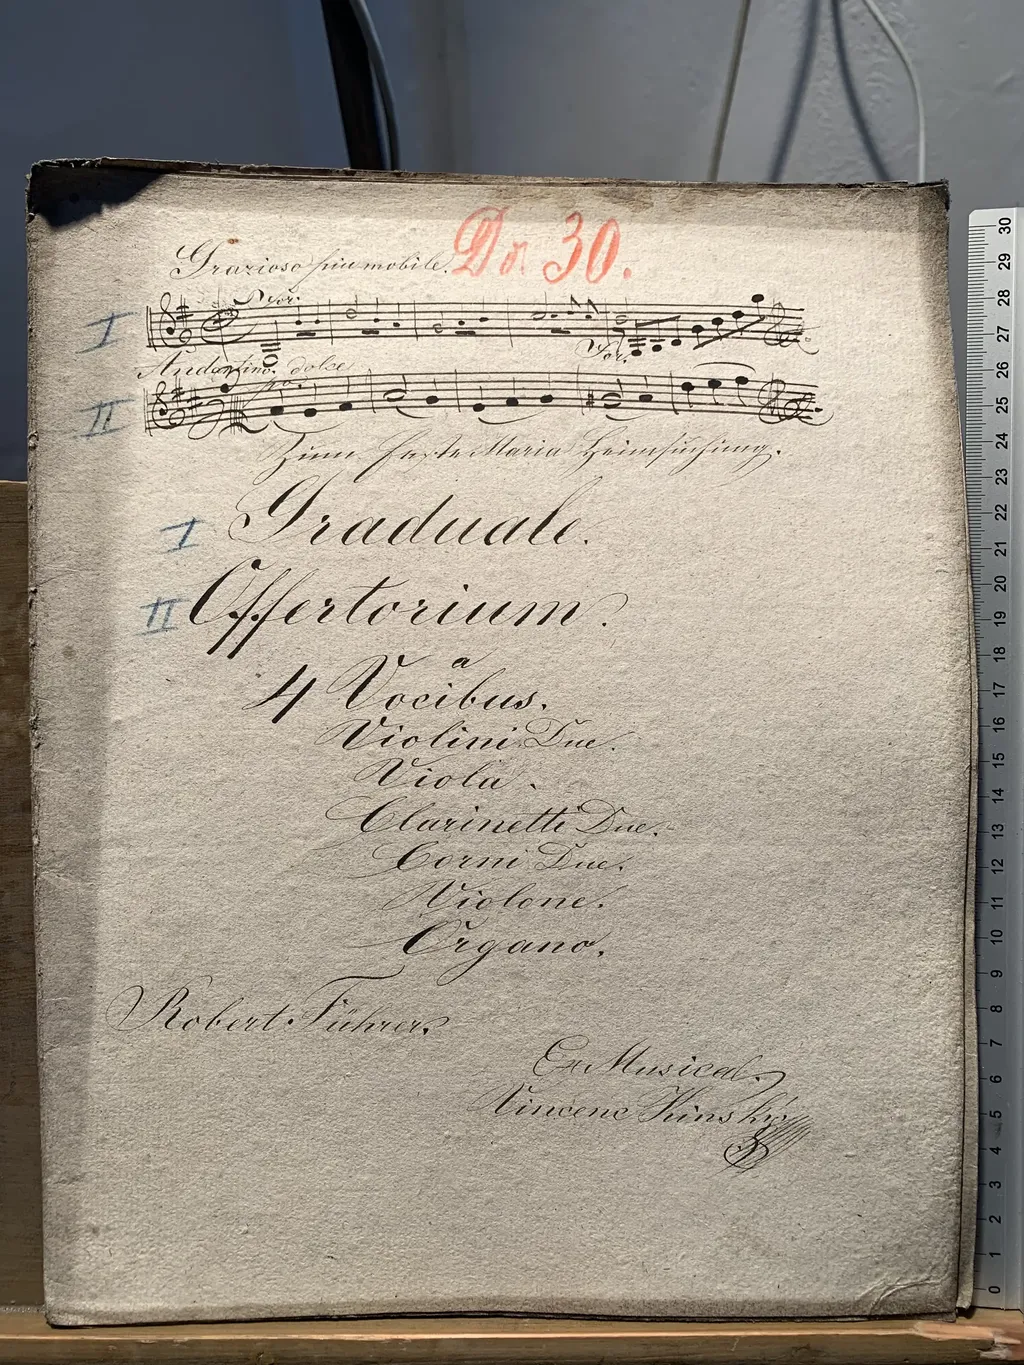 Do. 30.
Grazioso piu mobile.
for.
I
for.
Andantino. dolce
po.
II
Zum Feste Maria Heimsuchung.
I Graduale.
II Offertorium.
a
4 Vocibus.
Violini Due.
Viola.
Clarinetti Due.
Corni Due.
Violone.
Organo.
Robert Führer.
Ex Musical.
Vincenc Kinský
30
29
28
27
26
25
24
23
22
21
20
19
18
17
16
15
14
13
12
11
10
9
8
7
6
5
4
3
2
1
0